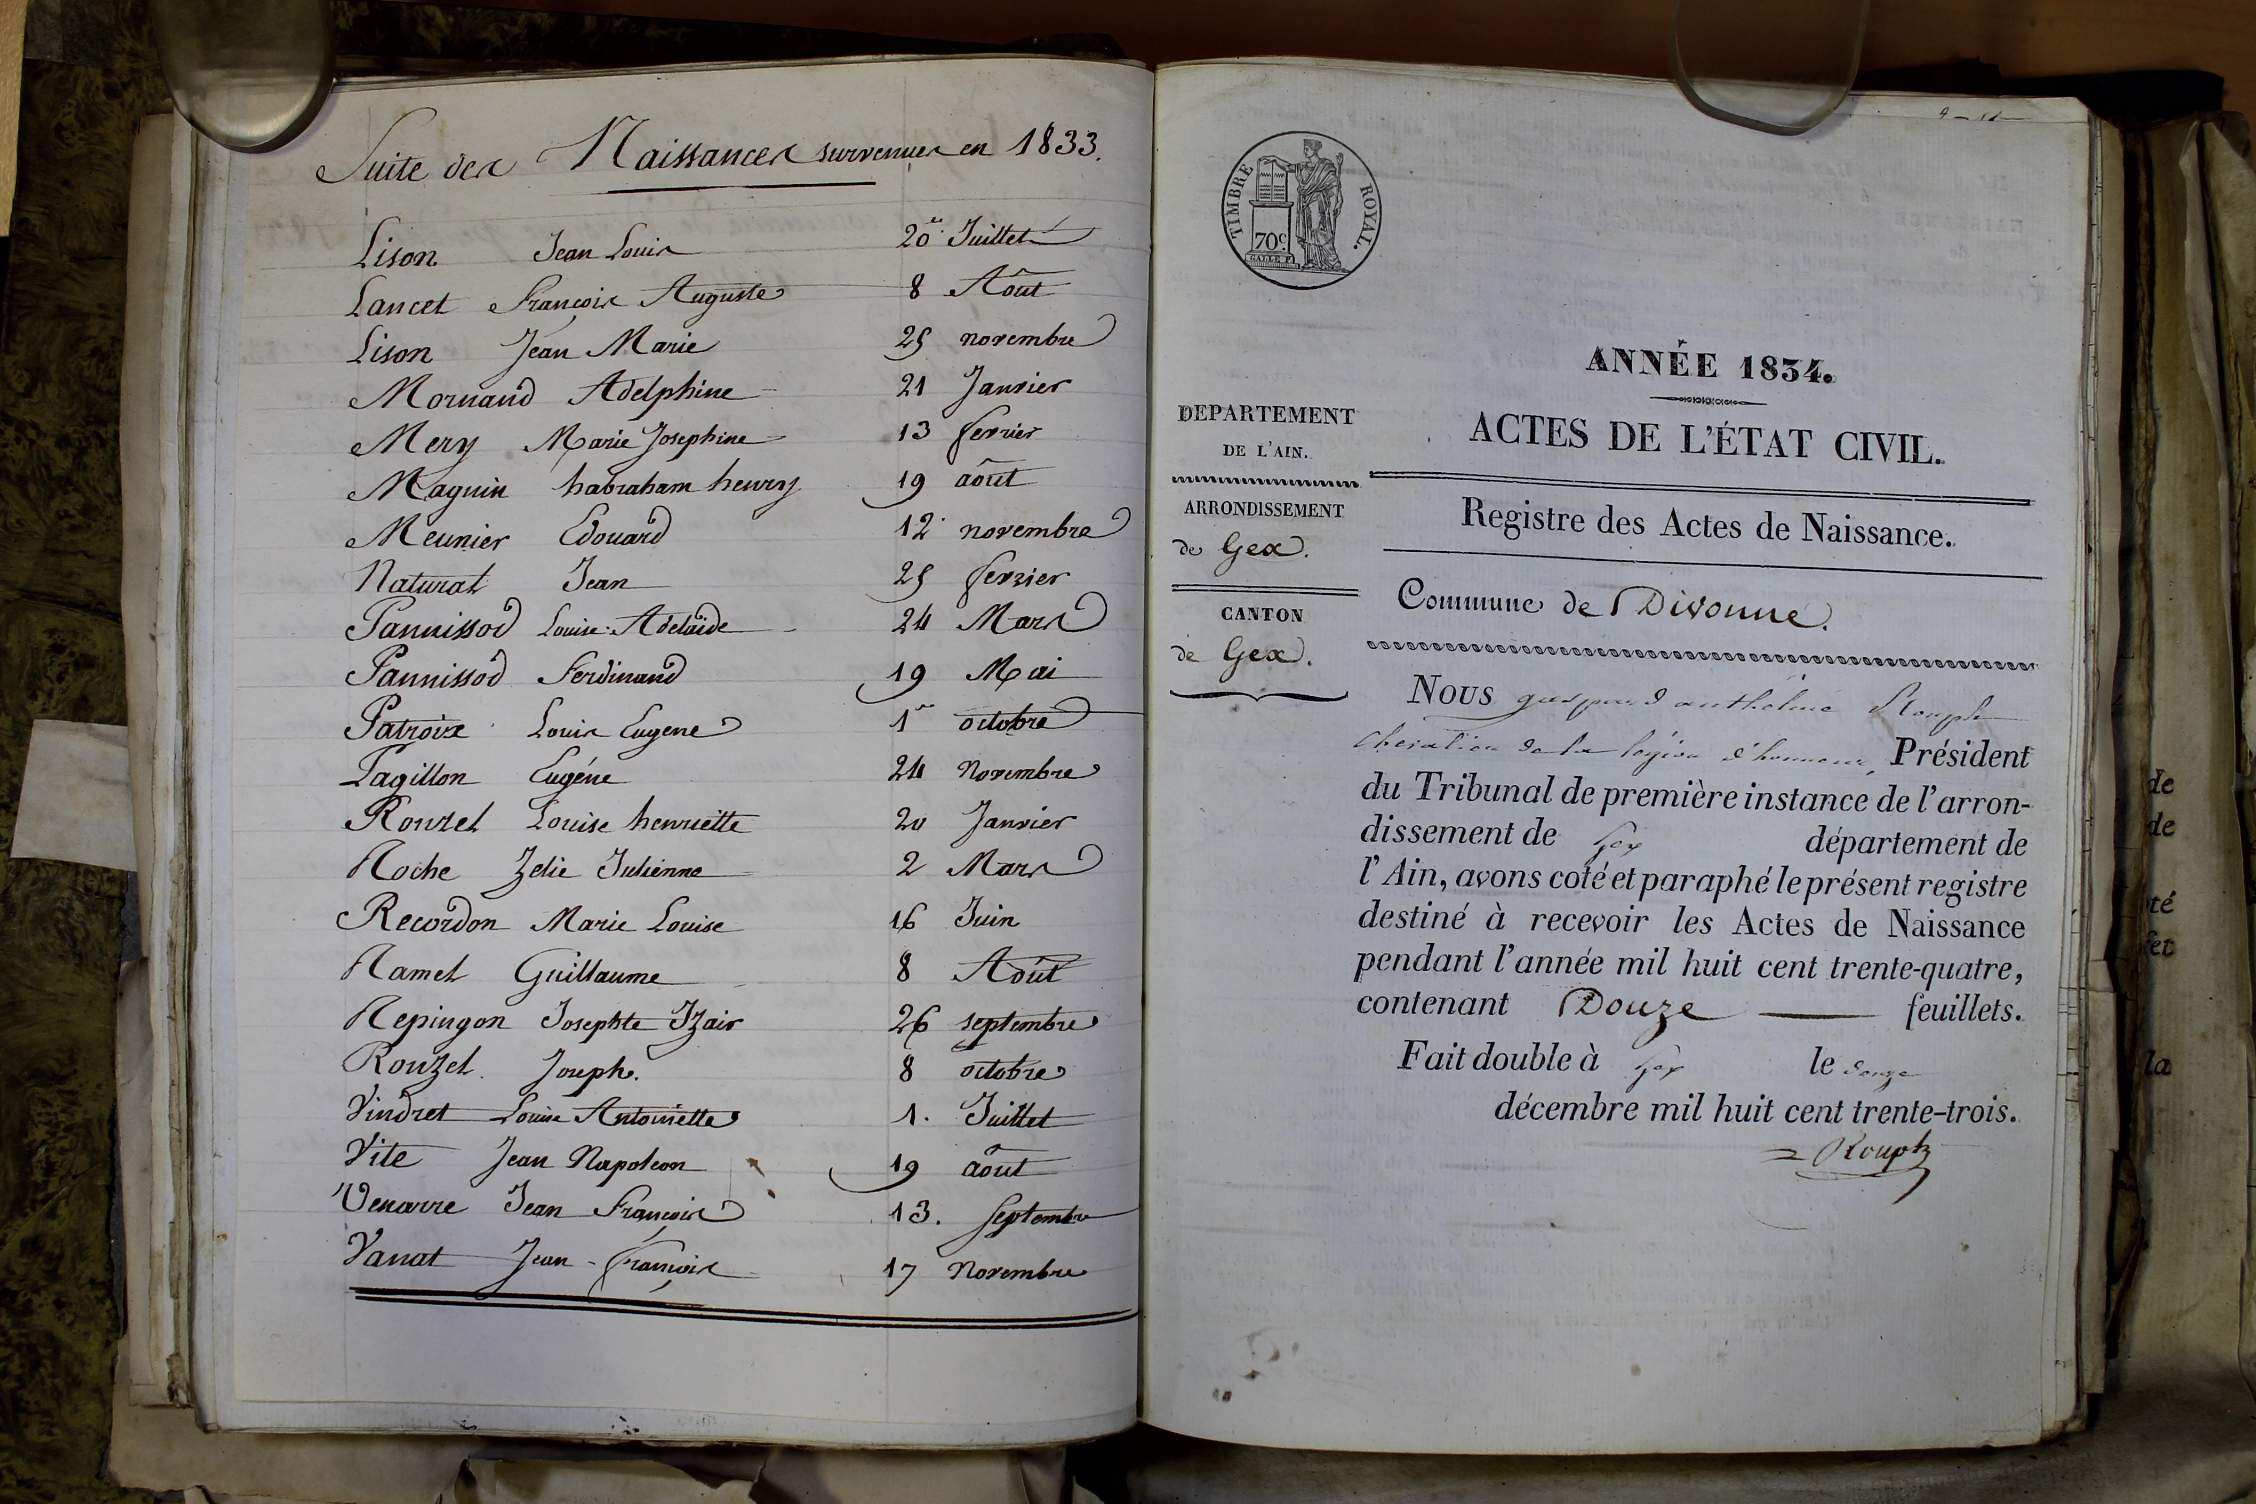 Suite des Naissances survenues en 1833.
Lison Jean Louis 20 Juillet
Lancet François Auguste 8 Août
Lison Jean Marie 25 novembre
Mornand Adelphine 21 Janvier
Mery Marie Josephine 13 fevrier
Magnin habraham henry 19 août
Meunier Edouard 12 novembre
Naturat Jean 25 fevrier
Pannissod Louise Adelaide 24 Mars
Pannissod Ferdinand 19 Mai
Patroix Louis Eugene 1er octobre
Pagillon Eugéne 24 Novembre
Rouzet Louise henriette 20 Janvier
Roche Zelie Julienne 2 Mars
Recordon Marie Louise 16 Juin
Ramel Guillaume 8 Août
Repingon Josephte Izair 26 septembre
Rouzet Joseph. 8 octobre
Vindret Louise Antoinette 1. Juillet
Vite Jean Napoleon 19 août
Venarre Jean François 13. septembre
Vanat Jean-françois 17 Novembre
TIMBRE ROYAL.
70c.
ANNÉE 1834.
DEPARTEMENT
DE L'AIN.
ARRONDISSEMENT
de Gex.
CANTON
de Gex.
ACTES DE L'ÉTAT CIVIL.
Registre des Actes de Naissance.
Commune de Divonne.
Nous gaspard anthelme Rouph
chevalier de la légion d'honneur, Président
du Tribunal de première instance de l'arron-
dissement de Gex département de
l'Ain, avons coté et paraphé le présent registre
destiné à recevoir les Actes de Naissance
pendant l'année mil huit cent trente-quatre,
contenant Douze feuillets.
Fait double à Gex le
décembre mil huit cent trente-trois.
de
de
té
et
la